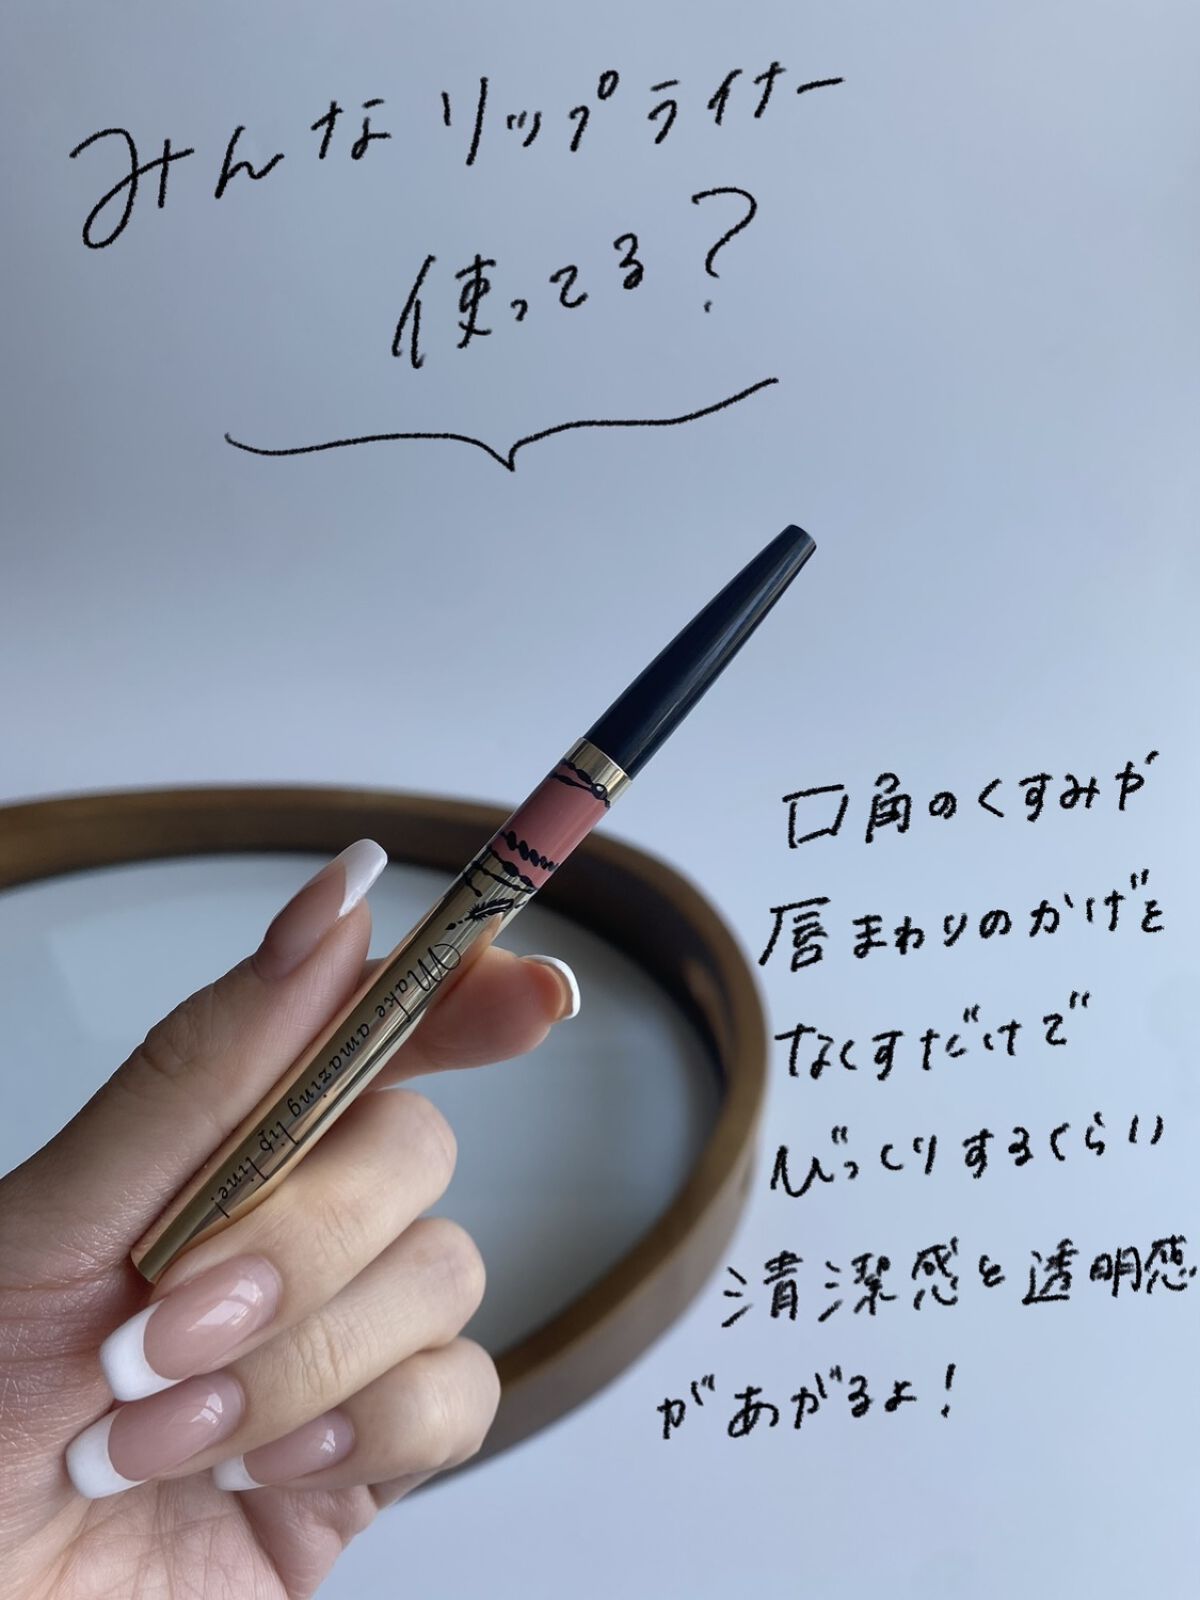 みんなリップライナー
使ってる?
Make amazing lip line!
口角のくすみや
唇まわりのかげを
なくすだけで
びっくりするくらい
清潔感と透明感
があがるよ!